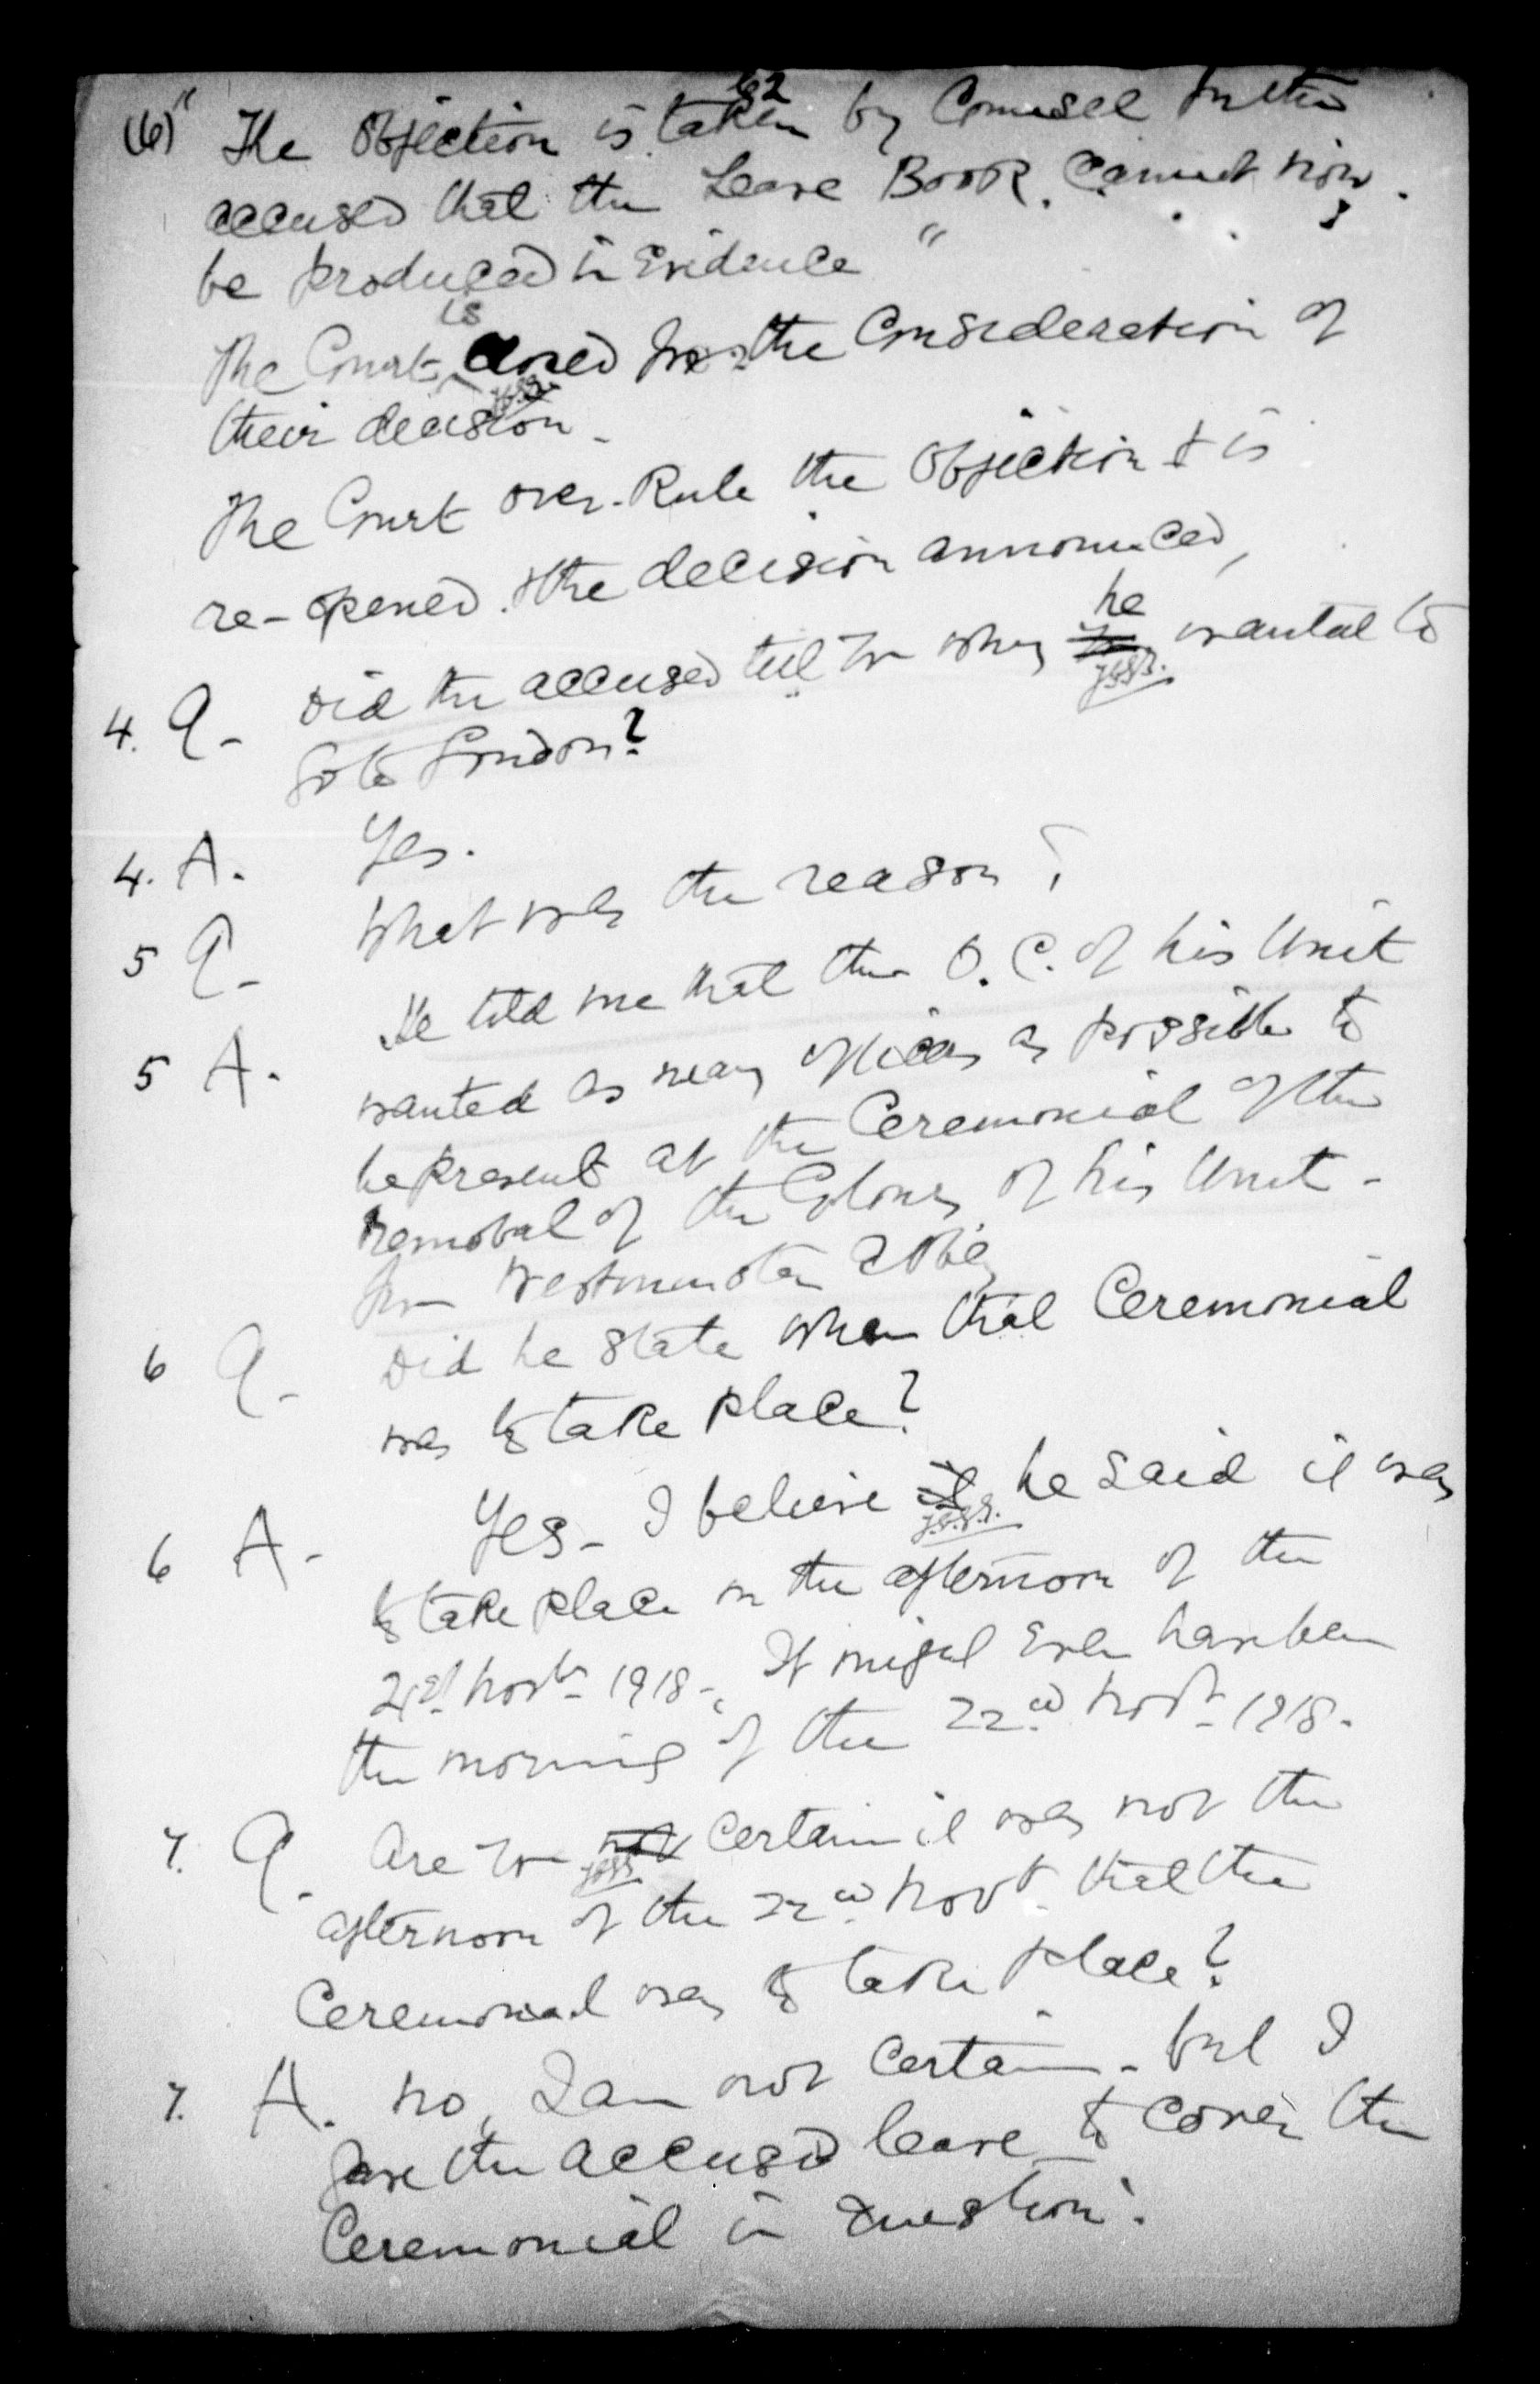 62
(6) "The Objection is taken by Counsel for the
accused that the Leave Book. Cannot now
be produced in Evidence"
The Court is closed for the Consideration of
their decision -
The Court over-Rule the Objection & is
re-opened & the decision announced,
4. Q - Did the accused tell you why he wanted to
J.S.S.R.
Go to London?
4. A. Yes.
5 Q - What was the reason?
5 A. He told me that the O.C. of his Unit
wanted as many officers as possible to
be present at the Ceremonial of the
removal of the Colours of his Unit -
from Westminster Abbey
6 Q - Did he state when that Ceremonial
was to take place?
6 A - Yes - I believe it he said it was
J.S.S.R.
to take place on the afternoon of the
21st Novbr 1918 -. It might even have been
the morning of the 22nd Novr 1918 -
7. Q. Are you not certain it was not the
afternoon of the 22nd Novr. that the
Ceremonial was to take place?
7. A. No, I am not certain - but I
gave the accused leave to cover the
Ceremonial in question.